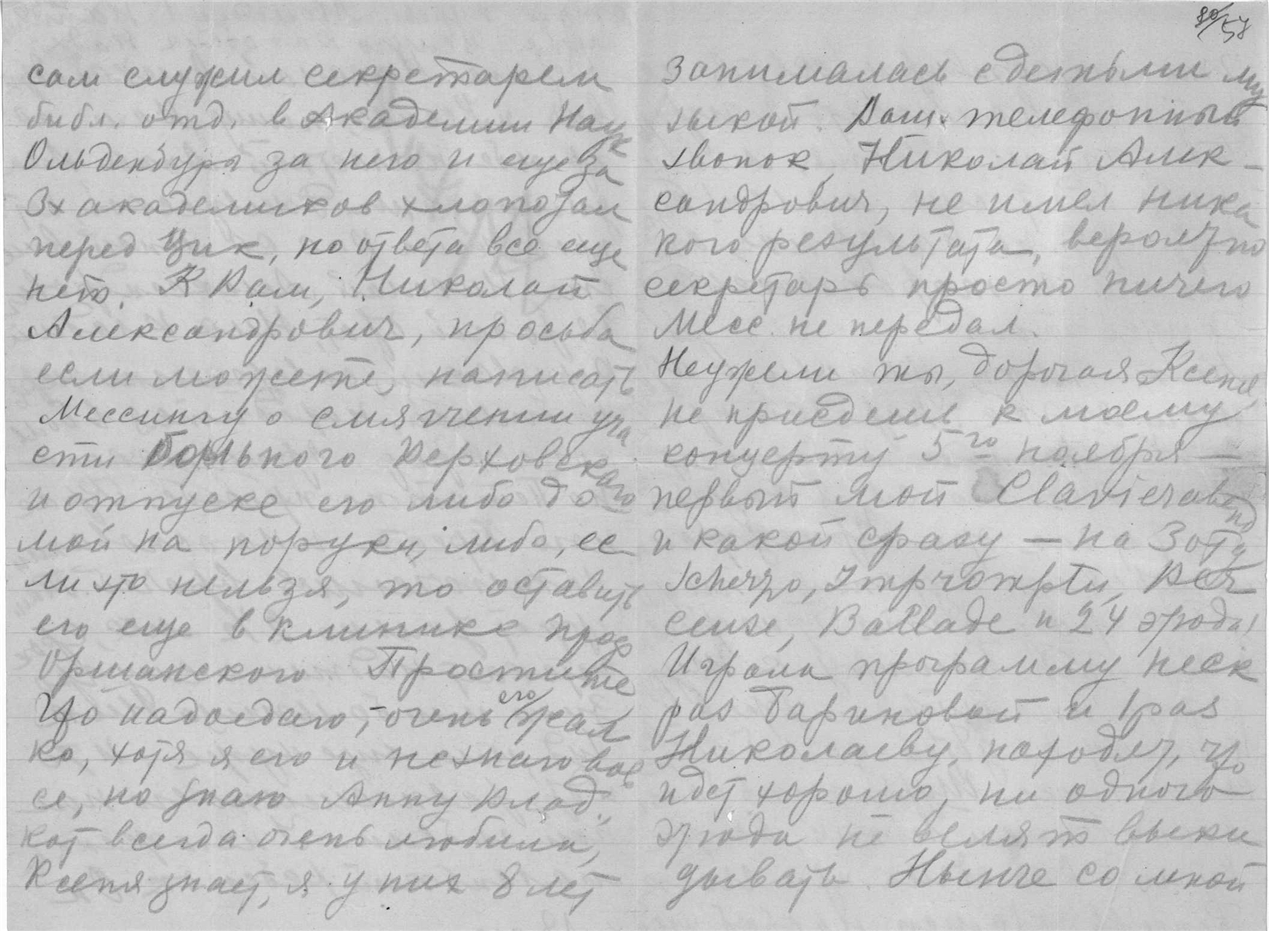 80/58
сам служил секретарем
библ. отд. в Академии Наук
Ольденбург за него и еще за
3х академиков хлопотал
перед Цик, но ответа все еще
нет. К Вам, Николай
Александрович, просьба
если можете, написать
Мессингу о смягчении уча
сти больного Верховского
и отпуске его либо до
мой на поруки, либо, ес
ли это нельзя, то оставить
его еще в клинике проф
Оршанского Простите
Что надоедаю, – очень его жал
ко, хотя я его и не знаю вов
се, но знаю Анну Влад.,
кот всегда очень любила,
Ксеня знает, я у них 8 лет
занималась с детьми му
зыкой. Ваш. телефонный
звонок, Николай Алек-
сандрович, не имел ника
кого результата, вероятно
секретарь просто ничего
Месс. не передал.
Неужели ты, дорогая Ксеня,
не приедешь к моему
концерту 5го ноября –
первый мой Clavierabend
и какой сразу – на 3 фта
Scherzo, Impromptu, Ber
ceuse, Ballade и 24 этюда!
Играла программу неск
раз Бариновой и 1 раз
Николаеву, находят, что
идет хорошо, ни одного
этюда не велят выки
дывать. Нынче со мной